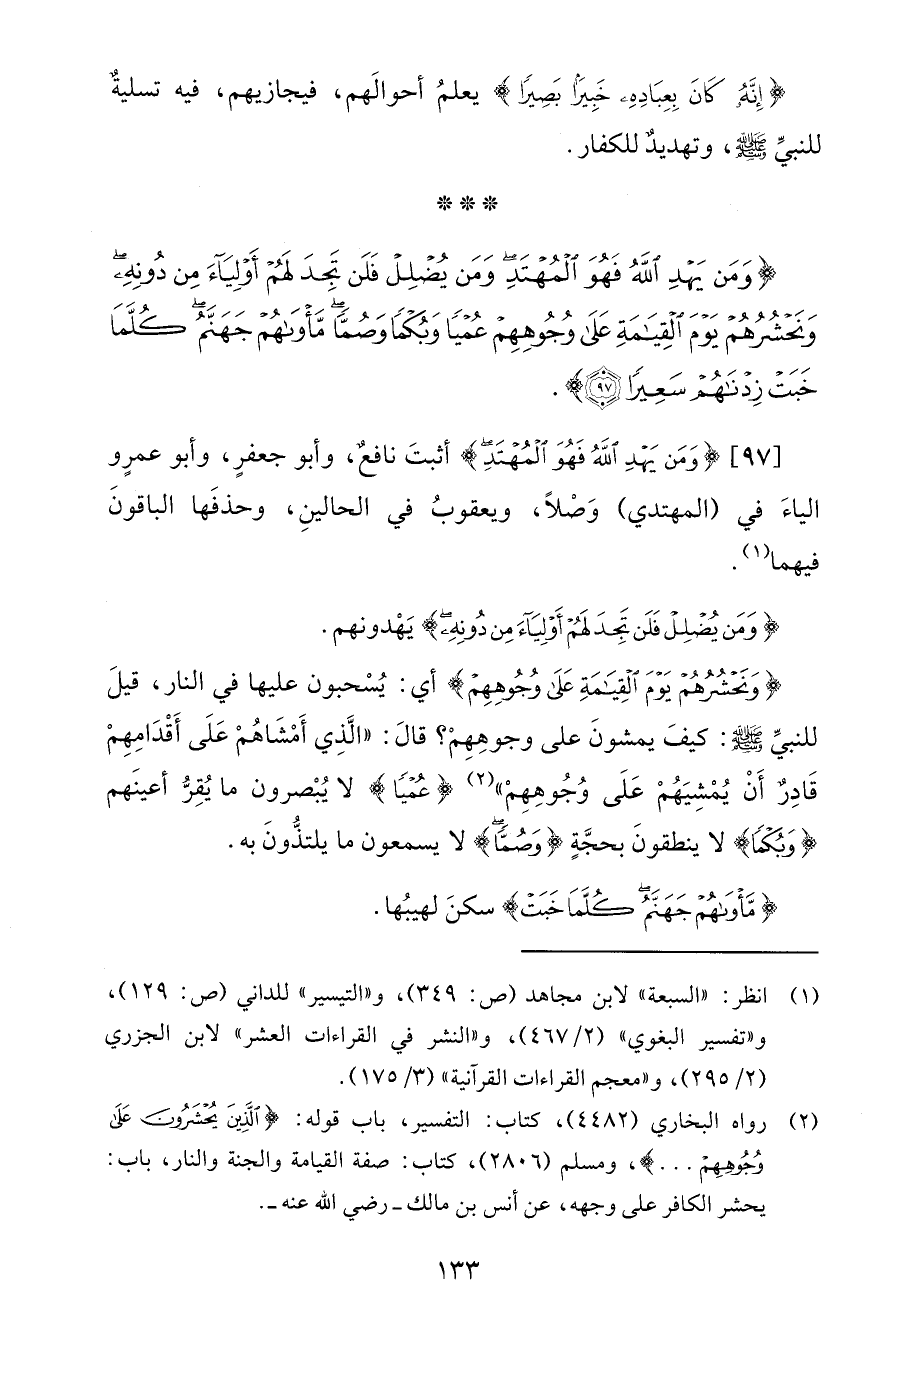 ﴿إِنَّهُ كَانَ بِعِبَادِهِ خَبِيرًا بَصِيرًا﴾ يعلمُ أحوالَهم، فيجازيهم، فيه تسليةٌ
للنبيِّ ﷺ، وتهديدٌ للكفار.
* * *
﴿وَمَن يَهْدِ ٱللَّهُ فَهُوَ ٱلْمُهْتَدِ ۖ وَمَن يُضْلِلْ فَلَن تَجِدَ لَهُمْ أَوْلِيَآءَ مِن دُونِهِۦ ۖ
وَنَحْشُرُهُمْ يَوْمَ ٱلْقِيَـٰمَةِ عَلَىٰ وُجُوهِهِمْ عُمْيًا وَبُكْمًا وَصُمًّا ۖ مَّأْوَىٰهُمْ جَهَنَّمُ ۖ كُلَّمَا
خَبَتْ زِدْنَـٰهُمْ سَعِيرًا ﴿٩٧﴾﴾.
[٩٧] ﴿وَمَن يَهْدِ ٱللَّهُ فَهُوَ ٱلْمُهْتَدِ ۖ﴾ أثبتَ نافعٌ، وأبو جعفرٍ، وأبو عمرٍو
الياءَ في (المهتدي) وَصْلاً، ويعقوبُ في الحالينِ، وحذفَها الباقونَ
فيهما(١).
﴿وَمَن يُضْلِلْ فَلَن تَجِدَ لَهُمْ أَوْلِيَآءَ مِن دُونِهِۦ ۖ﴾ يَهْدونهم.
﴿وَنَحْشُرُهُمْ يَوْمَ ٱلْقِيَـٰمَةِ عَلَىٰ وُجُوهِهِمْ﴾ أي: يُسْحبون عليها في النار، قيلَ
للنبيِّ ﷺ: كيفَ يمشونَ على وجوهِهِمْ؟ قالَ: «الَّذِي أَمْشَاهُمْ عَلَى أَقْدَامِهِمْ
قَادِرٌ أَنْ يُمْشِيَهُمْ عَلَى وُجُوهِهِمْ»(٢) ﴿عُمْيًا﴾ لا يُبْصرون ما يُقِرُّ أعينَهم
﴿وَبُكْمًا﴾ لا ينطقونَ بحجَّةٍ ﴿وَصُمًّا ۖ﴾ لا يسمعون ما يلتذُّونَ به.
﴿مَّأْوَىٰهُمْ جَهَنَّمُ ۖ كُلَّمَا خَبَتْ﴾ سكنَ لهيبُها.
(١) انظر: «السبعة» لابن مجاهد (ص: ٣٤٩)، و«التيسير» للداني (ص: ١٢٩)،
و«تفسير البغوي» (٢/ ٤٦٧)، و«النشر في القراءات العشر» لابن الجزري
(٢/ ٢٩٥)، و«معجم القراءات القرآنية» (٣/ ١٧٥).
(٢) رواه البخاري (٤٤٨٢)، كتاب: التفسير، باب قوله: ﴿ٱلَّذِينَ يُحْشَرُونَ عَلَىٰ
وُجُوهِهِمْ ...﴾، ومسلم (٢٨٠٦)، كتاب: صفة القيامة والجنة والنار، باب:
يحشر الكافر على وجهه، عن أنس بن مالك ـ رضي الله عنه ـ.
١٣٣